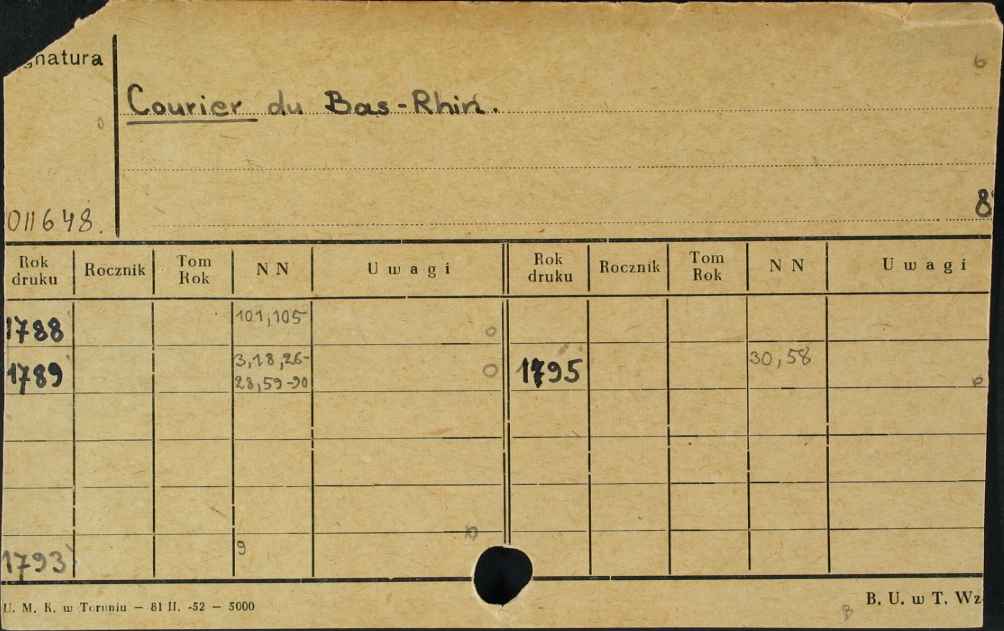 gnatura
6
Courier du Bas-Rhin.
011648.
8
Rok druku Rocznik Tom Rok N N Uwagi Rok druku Rocznik Tom Rok N N Uwagi
1788 101,105
1789 3,18,26-28,59-90 1795 30,58
1793 9
U. M. K. w Toruniu — 81 II. -52 — 5000
B. U. w T. Wz